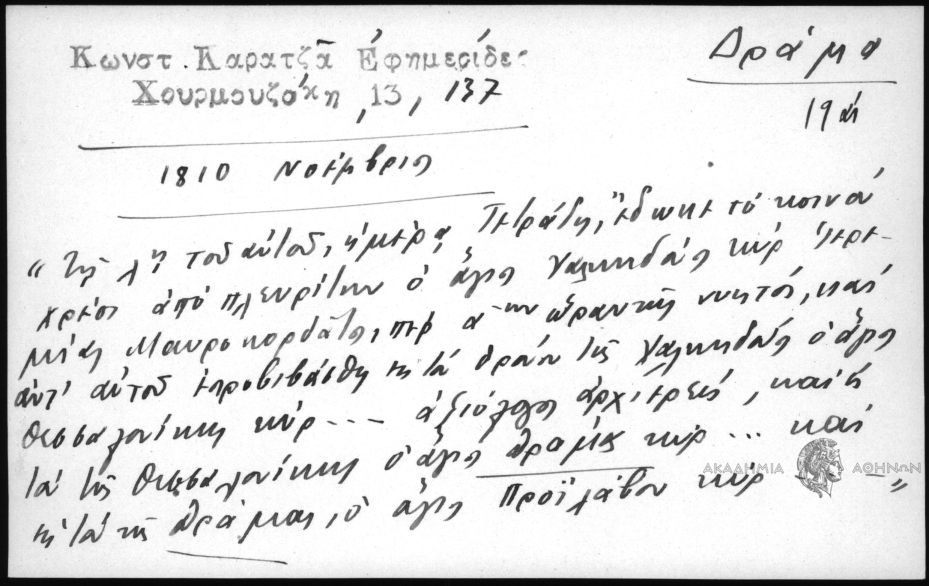 Κωνστ. Καρατζᾶ Ἐφημερίδες
Χουρμουζάκη, 13, 137
Δράμα
19 ά
1810 Νοέμβριος
"Τῇ λῃ τοῦ αὐτοῦ, ἡμέρᾳ Τετράδῃ, ἔδωκε τὸ κοινὸ
χρέος ἀπὸ πλευρίτην ὁ ἅγιος Χαλκηδόνος κὺρ Ἱερε-
μίας Μαυροκορδάτος, περὶ α ὥραν τῆς νυκτός, καὶ
ἀντ' αὐτοῦ ἐπροβιβάσθη εἰς τὸν θρόνον τῆς Χαλκηδόνος ὁ ἅγιος
Θεσσαλονίκης κὺρ --- ἀξιόλογος ἀρχιερεύς, καὶ εἰς
τὸν τῆς Θεσσαλονίκης ὁ ἅγιος Δράμας κὺρ ... καὶ
εἰς τὸν τῆς Δράμας, ὁ ἅγιος Προϊλάβου κὺρ "
ΑΚΑΔΗΜΙΑ ΑΘΗΝΩΝ